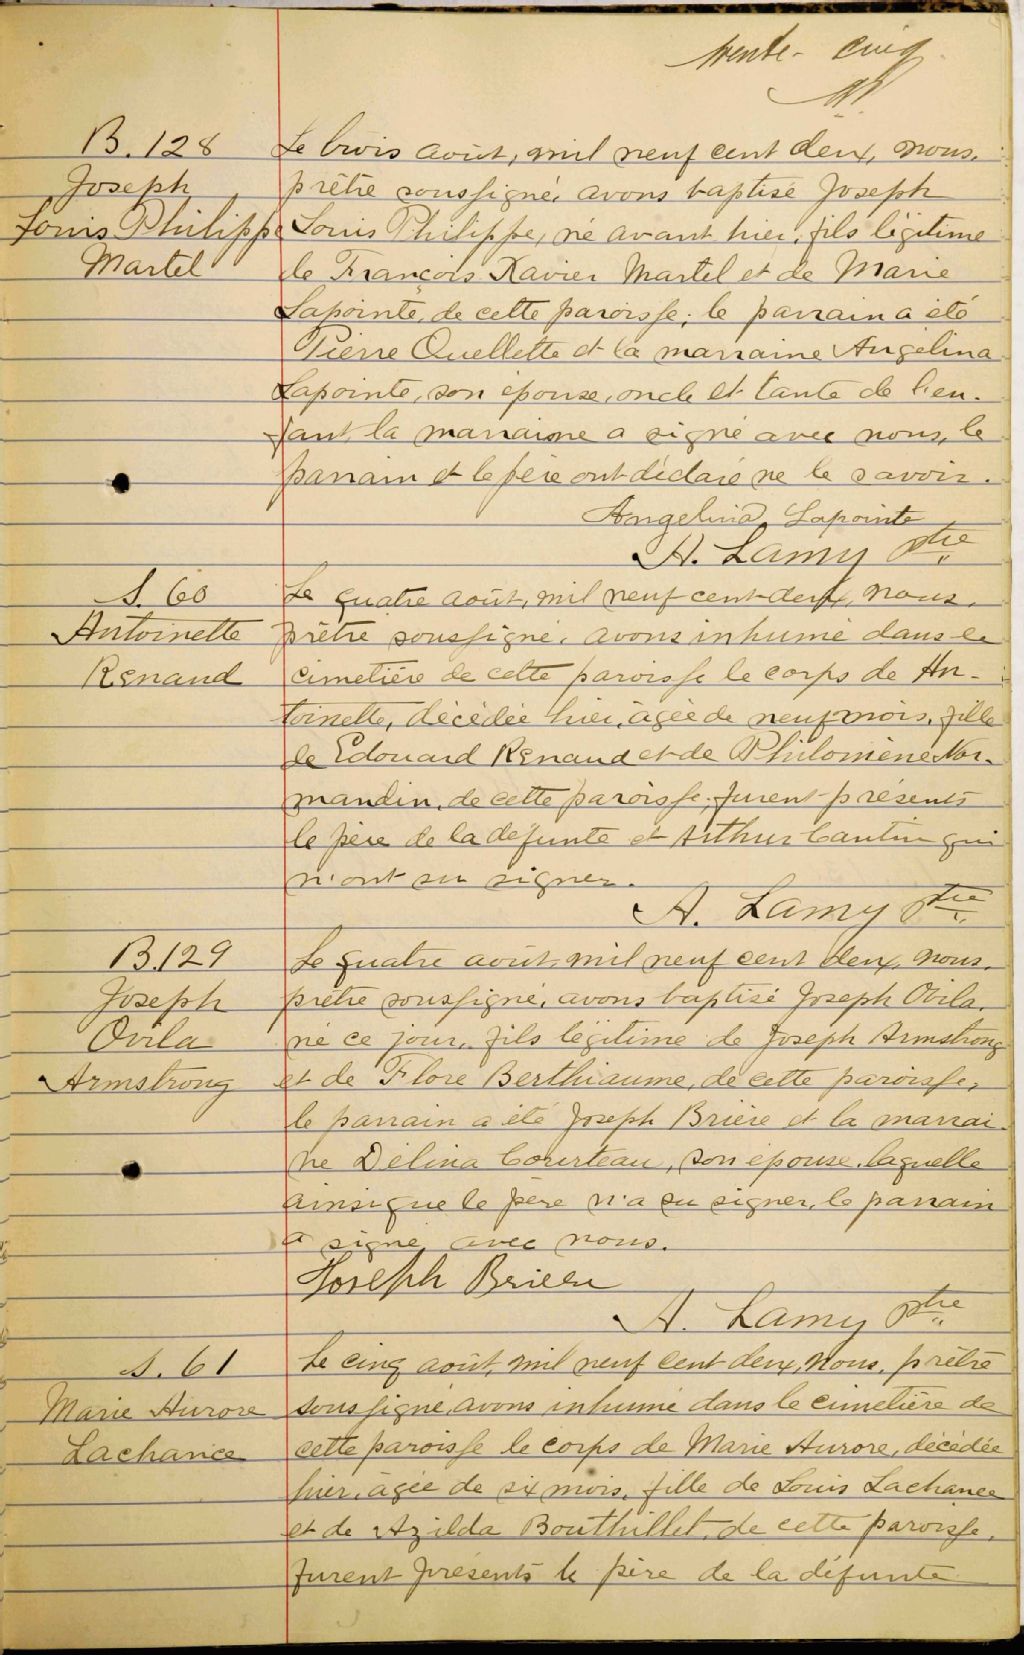 trente-cinq
B. 128
Joseph
Louis Philippe
Martel
Le trois août, mil neuf cent deux, nous,
prêtre soussigné, avons baptisé Joseph
Louis Philippe, né avant hier, fils légitime
de François Xavier Martel et de Marie
Lapointe, de cette paroisse; le parrain a été
Pierre Ouellette et la marraine Angélina
Lapointe, son épouse, oncle et tante de l'en-
fant, la marraine a signé avec nous, le
parrain et le père ont déclaré ne le savoir.
Angelina Lapointe
A. Lamy Ptre
S. 60
Antoinette
Renaud
Le quatre août, mil neuf cent deux, nous,
prêtre soussigné, avons inhumé dans le
cimetière de cette paroisse le corps de An-
toinette, décédée hier, âgée de neuf mois, fille
de Edouard Renaud et de Philomène Nor-
mandin, de cette paroisse; furent présents
le père de la défunte et Arthur Cantin qui
n'ont su signer.
A. Lamy Ptre
B. 129
Joseph
Ovila
Armstrong
Le quatre août, mil neuf cent deux, nous,
prêtre soussigné, avons baptisé Joseph Ovila,
né ce jour, fils légitime de Joseph Armstrong
et de Flore Berthiaume, de cette paroisse,
le parrain a été Joseph Brière et la marrai-
ne Délina Courteau, son épouse, laquelle
ainsi que le père n'a su signer, le parrain
a signé avec nous.
Joseph Brieer
A. Lamy Ptre
S. 61
Marie Aurore
Lachance
Le cinq août, mil neuf cent deux, nous, prêtre
soussigné, avons inhumé dans le cimetière de
cette paroisse le corps de Marie Aurore, décédée
hier, âgée de six mois, fille de Louis Lachance
et de Azilda Bouthillet, de cette paroisse,
furent présents le père de la défunte